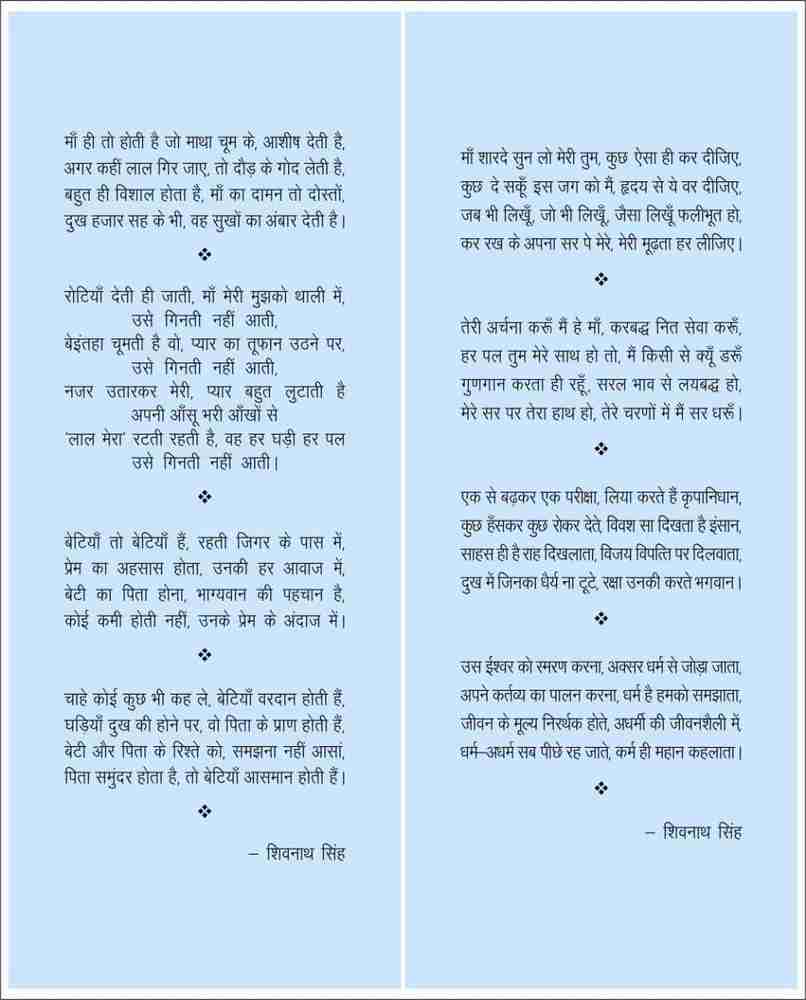 माँ ही तो होती है जो माथा चूम के, आशीष देती है,
अगर कहीं लाल गिर जाए, तो दौड़ के गोद लेती है,
बहुत ही विशाल होता है, माँ का दामन तो दोस्तों,
दुख हजार सह के भी, वह सुखों का अंबार देती है।
रोटियाँ देती ही जाती, माँ मेरी मुझको थाली में,
उसे गिनती नहीं आती,
बेइंतहा चूमती है वो, प्यार का तूफान उठने पर,
उसे गिनती नहीं आती,
नजर उतारकर मेरी, प्यार बहुत लुटाती है
अपनी आँसू भरी आँखों से
'लाल मेरा' रटती रहती है, वह हर घड़ी हर पल
उसे गिनती नहीं आती।
बेटियाँ तो बेटियाँ हैं, रहती जिगर के पास में,
प्रेम का अहसास होता, उनकी हर आवाज में,
बेटी का पिता होना, भाग्यवान की पहचान है,
कोई कमी होती नहीं, उनके प्रेम के अंदाज में।
चाहे कोई कुछ भी कह ले, बेटियाँ वरदान होती हैं,
घड़ियाँ दुख की होने पर, वो पिता के प्राण होती हैं,
बेटी और पिता के रिश्ते को, समझना नहीं आसां,
पिता समुंदर होता है, तो बेटियाँ आसमान होती हैं।
– शिवनाथ सिंह
माँ शारदे सुन लो मेरी तुम, कुछ ऐसा ही कर दीजिए,
कुछ दे सकूँ इस जग को मैं, हृदय से ये वर दीजिए,
जब भी लिखूँ, जो भी लिखूँ, जैसा लिखूँ फलीभूत हो,
कर रख के अपना सर पे मेरे, मेरी मूढ़ता हर लीजिए।
तेरी अर्चना करूँ मैं हे माँ, करबद्ध नित सेवा करूँ,
हर पल तुम मेरे साथ हो तो, मैं किसी से क्यूँ डरूँ
गुणगान करता ही रहूँ, सरल भाव से लयबद्ध हो,
मेरे सर पर तेरा हाथ हो, तेरे चरणों में मैं सर धरूँ।
एक से बढ़कर एक परीक्षा, लिया करते हैं कृपानिधान,
कुछ हँसकर कुछ रोकर देते, विवश सा दिखता है इंसान,
साहस ही है राह दिखलाता, विजय विपत्ति पर दिलवाता,
दुख में जिनका धैर्य ना टूटे, रक्षा उनकी करते भगवान।
उस ईश्वर को स्मरण करना, अक्सर धर्म से जोड़ा जाता,
अपने कर्तव्य का पालन करना, धर्म है हमको समझाता,
जीवन के मूल्य निरर्थक होते, अधर्मी की जीवनशैली में,
धर्म–अधर्म सब पीछे रह जाते, कर्म ही महान कहलाता।
– शिवनाथ सिंह